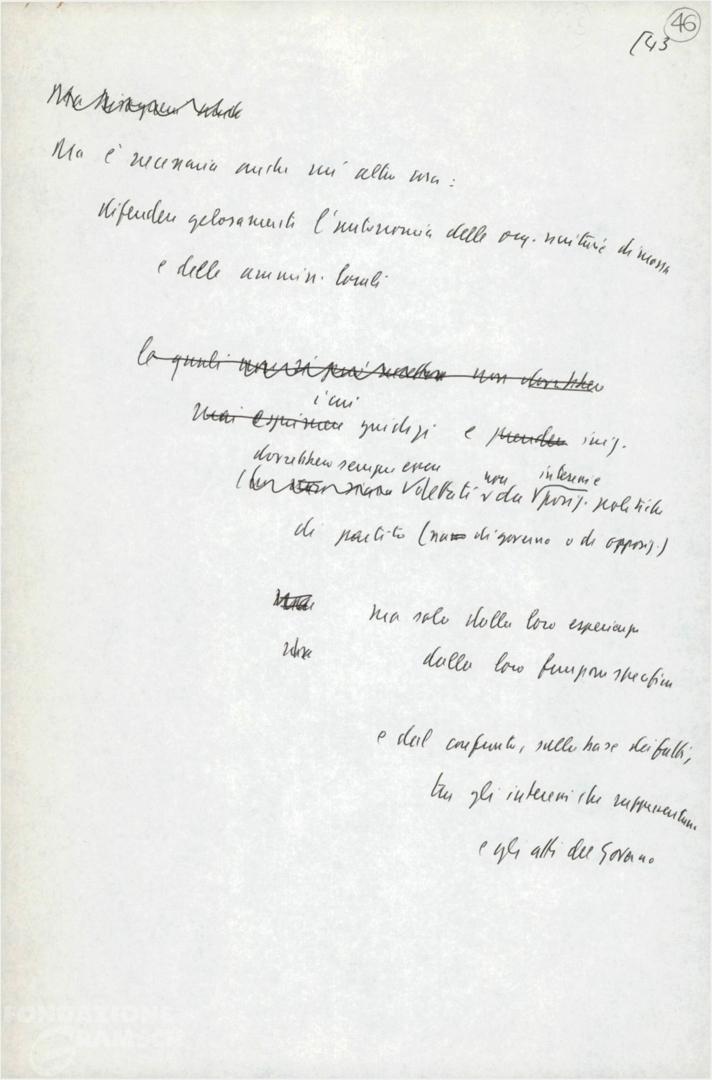 46
[43
Ma è necessaria anche un'altra cosa:
difendere gelosamente l'autonomia delle org. unitarie di massa
e delle ammin. locali
le quali non dovrebbero
i cui
mai esprimere giudizi e prendere iniz.
dovrebbero sempre essere non interesse
dettati da posiz. politiche
di partito (di governo o di opposiz.)
ma solo dalla loro esperienza
dalla loro funzione specifica
e dal confronto, sulla base dei fatti,
tra gli interessi che rappresentano
e gli atti del Governo
FONDAZIONE
GRAMSCI